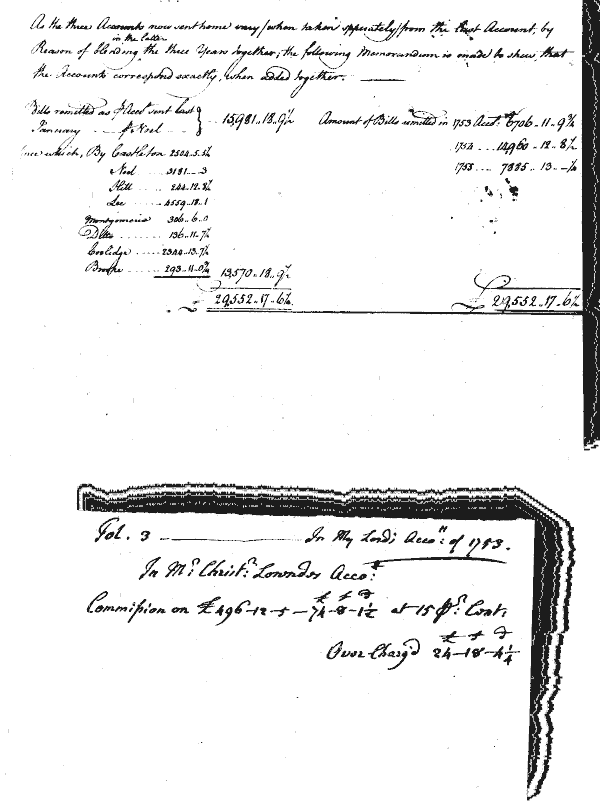 As the three Accounts now sent home vary (when taken separately) from the first Account, by
in the latter
Reason of blending the three Years together; the following Memorandum is made to shew that
the Accounts correspond exactly, when added together.
Bills remitted as pr Acct sent last
January .. pr Noel .. 15,981..18..9½
Since which, By Castleton 2504..5..5¼
Noel .... 3181..--3
Hill .... 244..12..8¼
Lee .... 4559..18..1
Montgomerie 306..6..0
Ditto .... 136..11..7½
Coolidge .... 2344..13..7½
Brooke .... 293..11..0¾ 13,570..18..9½
£ 29,552..17..6½
Amount of Bills remitted in 1753 Acct. £6706..11..9¾
1754 .... 14960..12..8½
1755 .... 7885..13..--¼
£ 29,552..17..6½
Fol. 3 In My Lords Acco:tt of 1753.
In Mr. Christr. Lowndes Acco:tt
£ s d
Commission on £496-12-5-74-8-1½ at 15 pr. Cent.
£ s d
Over Charg'd 24-18-4¼